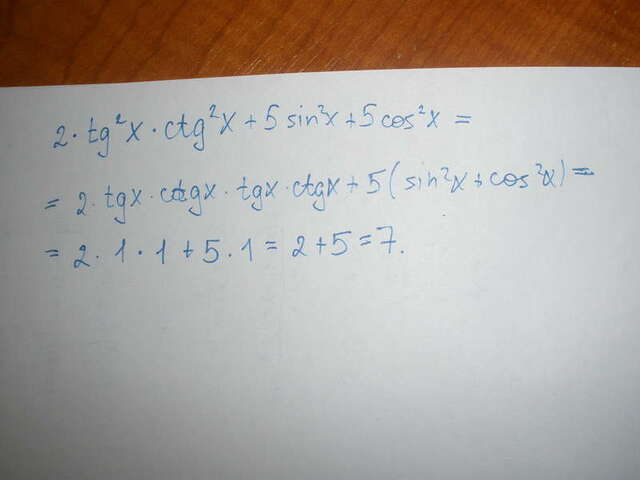 2 · tg²x · ctg²x + 5 sin²x + 5 cos²x =
= 2 · tgx · ctgx · tgx · ctgx + 5 ( sin²x + cos²x ) =
= 2 · 1 · 1 + 5 · 1 = 2 + 5 = 7.